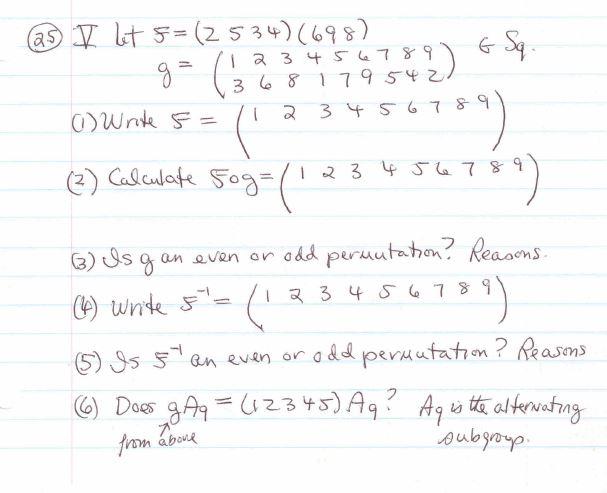 (25) V Let 5 = (2 5 3 4)(6 9 8)
g = ( 1 2 3 4 5 6 7 8 9 ) ∈ S9.
3 6 8 1 7 9 5 4 2
(1) Write 5 = ( 1 2 3 4 5 6 7 8 9 )
(2) Calculate 5∘g = ( 1 2 3 4 5 6 7 8 9 )
(3) Is g an even or odd permutation? Reasons.
(4) Write 5⁻¹ = ( 1 2 3 4 5 6 7 8 9 )
(5) Is 5⁻¹ an even or odd permutation? Reasons
(6) Does gA9 = (12345) A9? A9 is the alternating
from above subgroup.